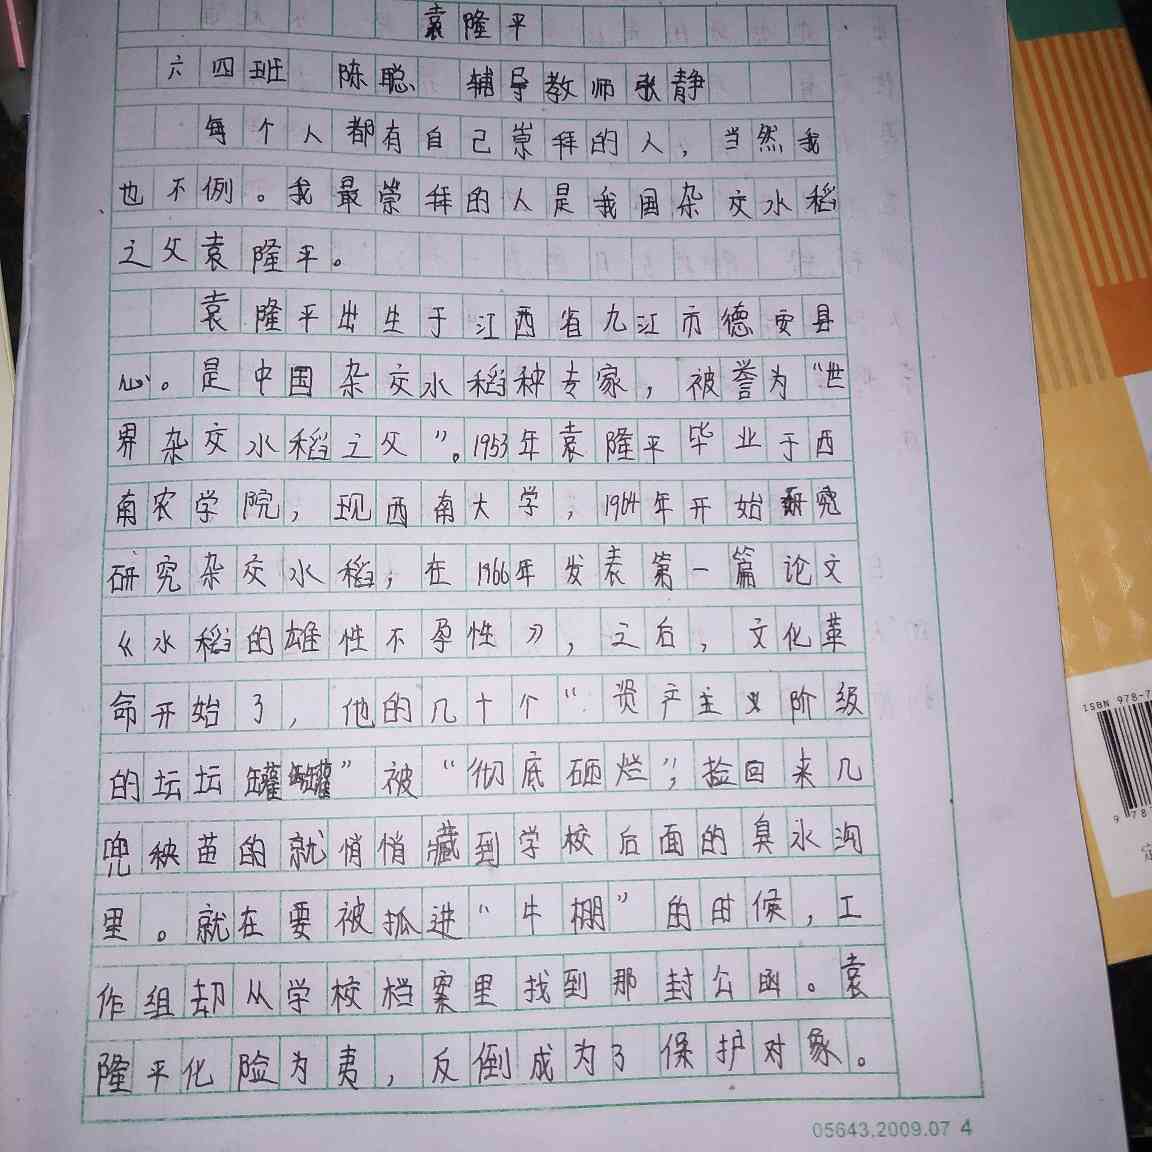 袁隆平
六四班 陈聪 辅导教师张静
每个人都有自己崇拜的人，当然我
也不例。我最崇拜的人是我国杂交水稻
之父袁隆平。
袁隆平出生于江西省九江市德安县
是中国杂交水稻种专家，被誉为“世
界杂交水稻之父”。1953年袁隆平毕业于西
南农学院，现西南大学，1964年开始研究
研究杂交水稻，在1966年发表第一篇论文
《水稻的雄性不孕性》，之后，文化革
命开始了，他的几十个“资产主义阶级
的坛坛罐罐”被“彻底砸烂”，捡回来几
兜秧苗的就悄悄藏到学校后面的臭水沟
里。就在要被抓进“牛棚”的时候，工
作组却从学校档案里找到那封公函。袁
隆平化险为夷，反倒成为了保护对象。
05643.2009.07 4
ISBN 978-7
9 78
定